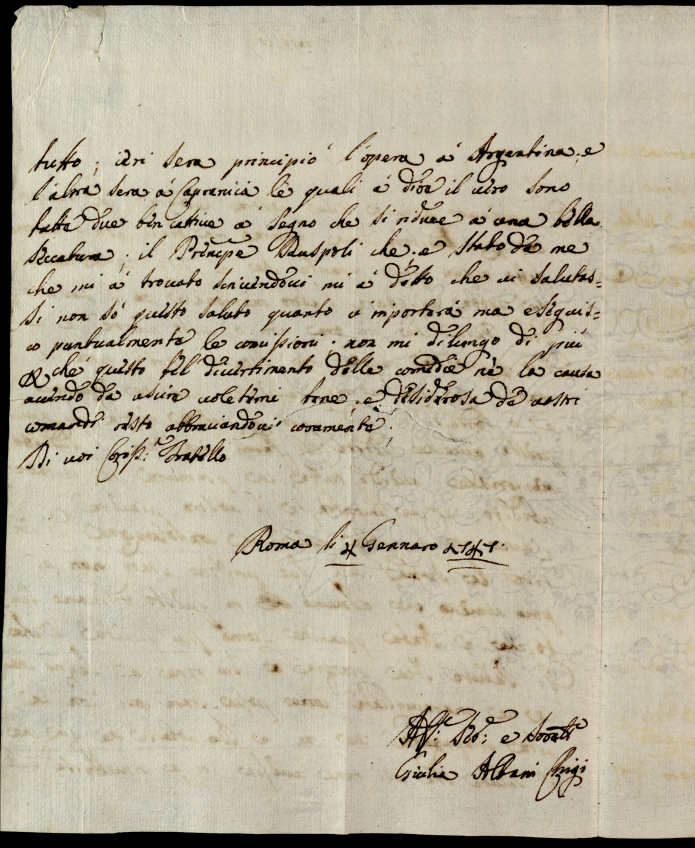 tutto; ieri sera principiò l'opera á Argentina, e
l'altra sera á Capranica le quali á dirla il vero sono
tutte due ben cattive á segno che si riduce á una bella
seccatura; il Principe Ruspoli che e stato da me
che mi á trovato scrivendovi mi á detto che vi salutas=
si non só questo saluto quanto v'inporterá ma eseguis=
co puntualmente le comissioni. non mi dilungo di più
che questo bel divertimento delle comedie ne la causa
avendo da uscire voletemi bene, e desiderosa de vostri
comandi resto abbraciandovi coramente,
Di voi Cariss.º Fratello
Roma li 4 Gennaro
Aff.ª e
Giulia Albani Chigi